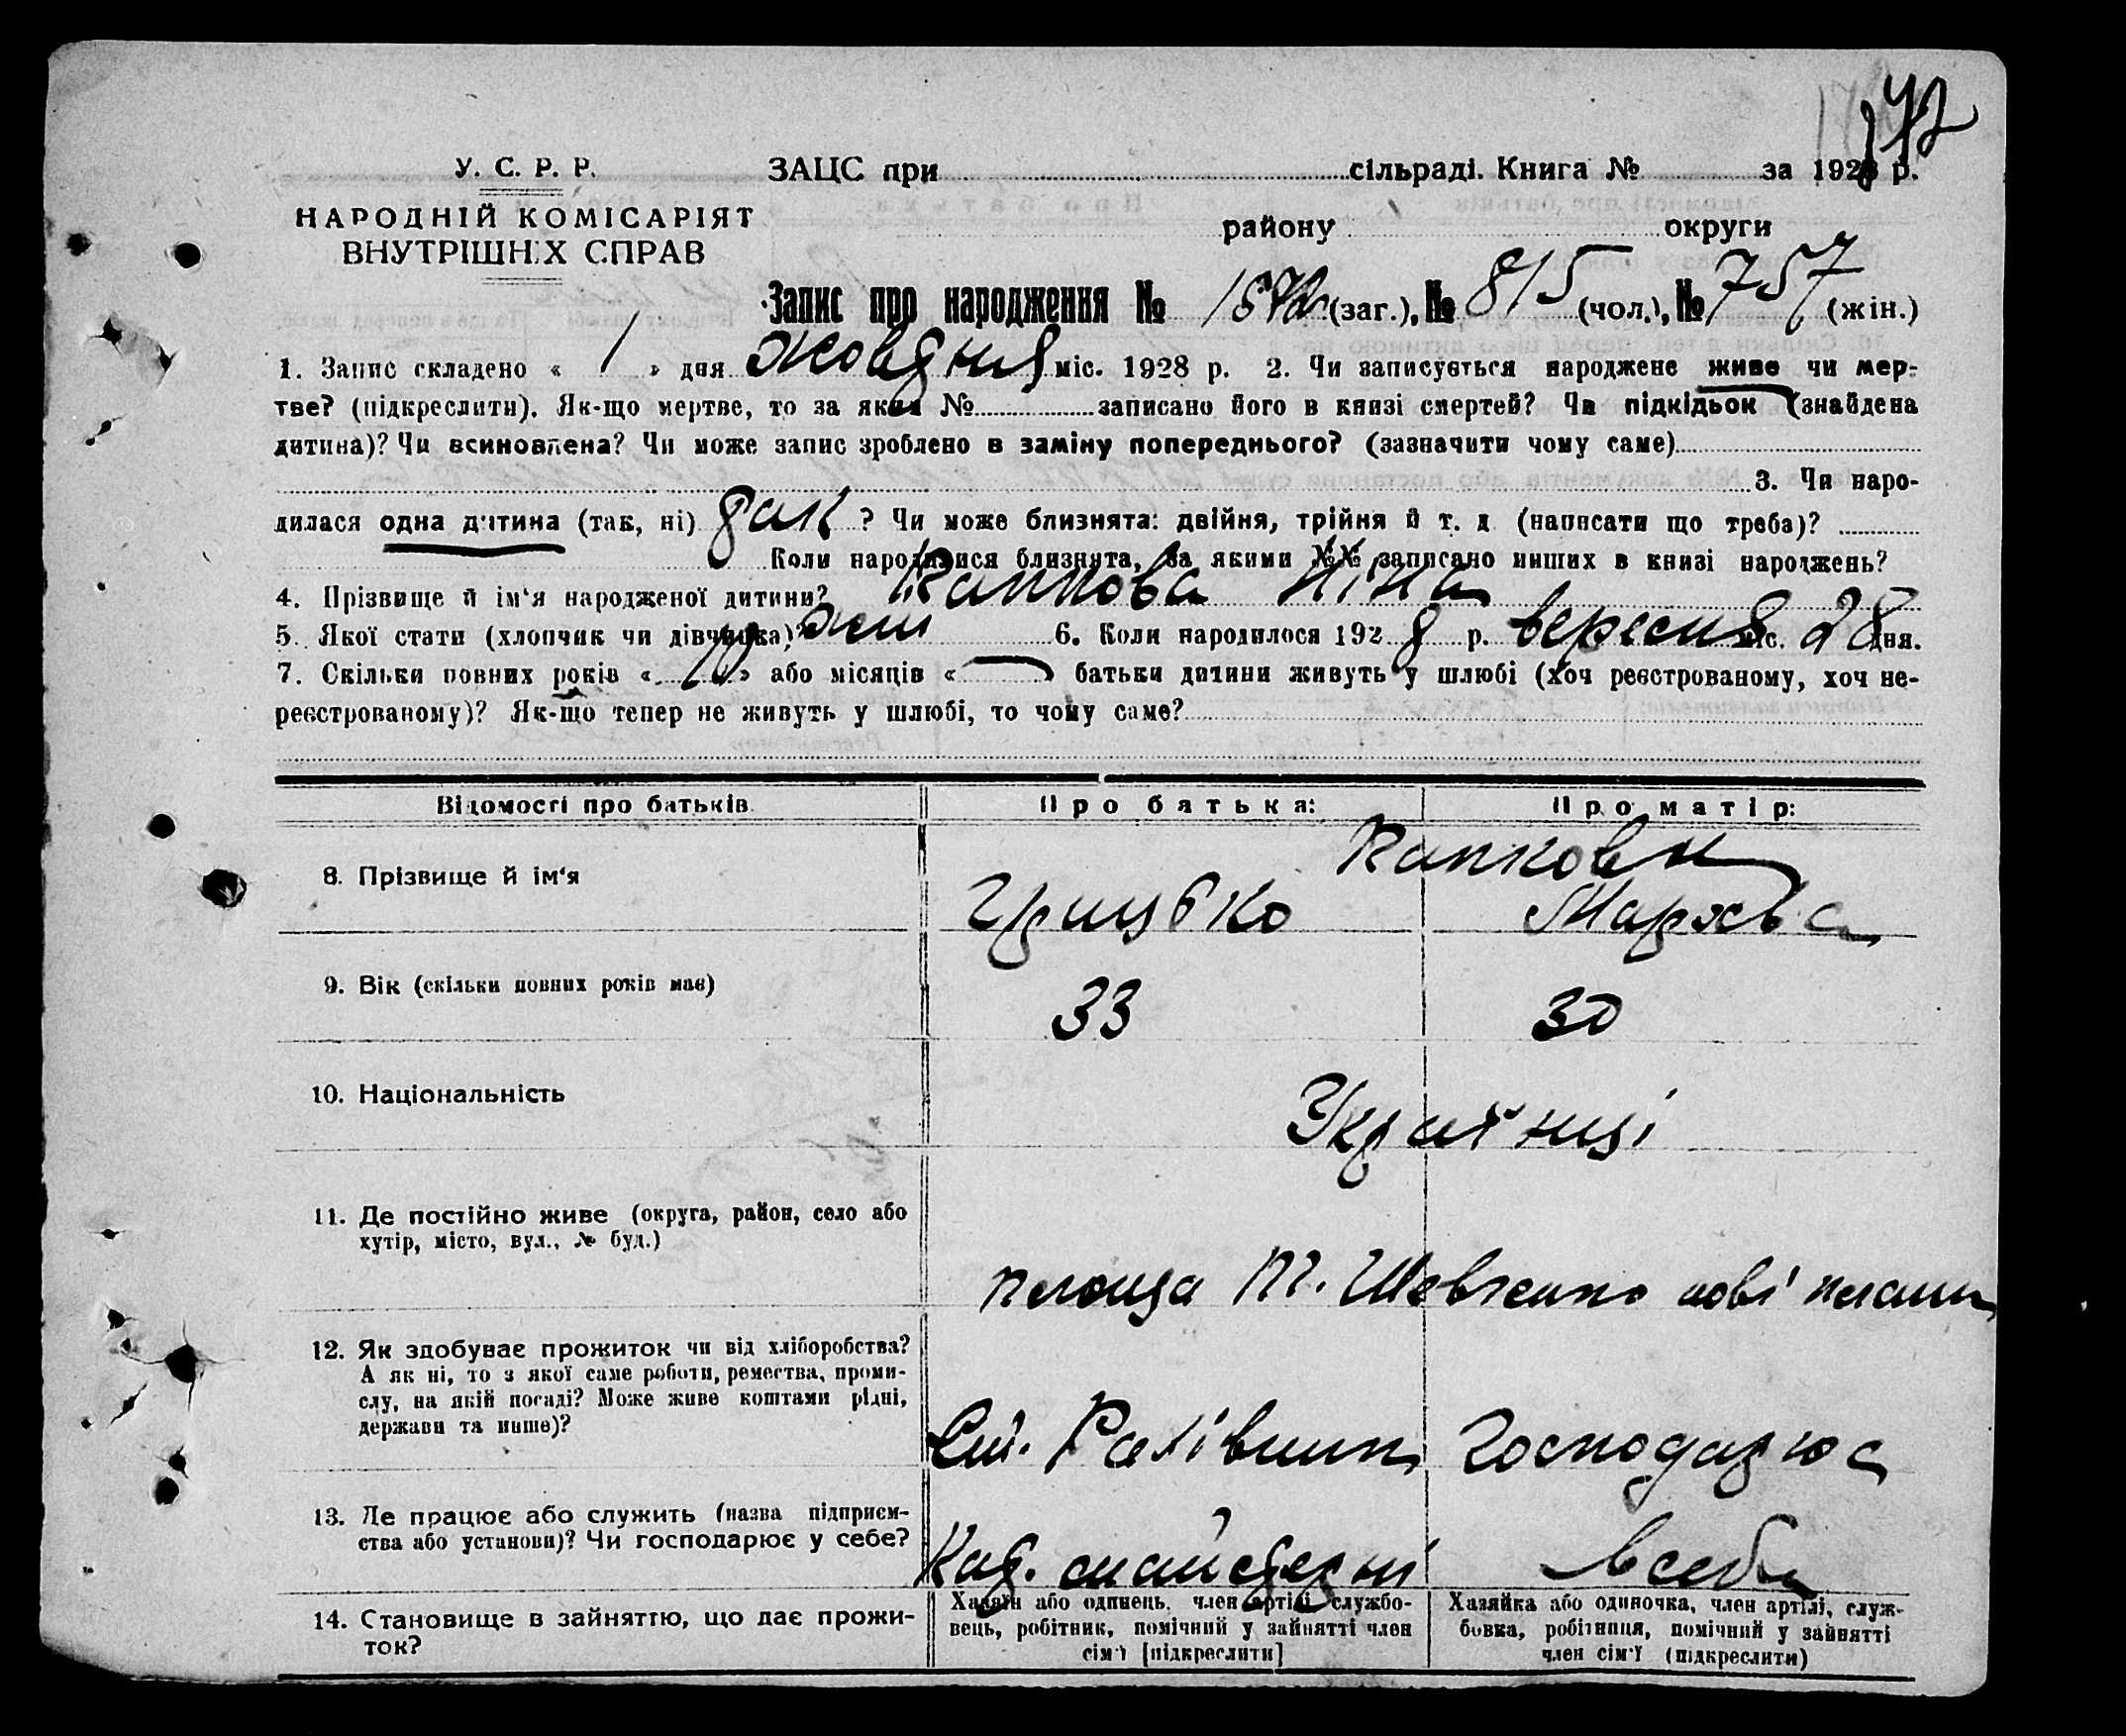 172
У. С. Р. Р. ЗАЦС при сільраді. Книга № за 1928 р.
НАРОДНІЙ КОМІСАРІЯТ
ВНУТРІШНІХ СПРАВ
району округи
Запис про народження № 1572 (заг.), № 815 (чол.), № 757 (жін.)
1. Запис складено « 1 » дня жовтня міс. 1928 р. 2. Чи записується народжене живе чи мер-
тве? (підкреслити). Як-що мертве, то за яким № записано його в книзі смертей? Чи підкідьок (знайдена
дитина)? Чи всиновлена? Чи може запис зроблено в заміну попереднього? (зазначити чому саме)
3. Чи наро-
дилася одна дитина (так, ні) так ? Чи може близнята: двійня, трійня й т. д (написати що треба)?
Коли народилися близнята, за якими №№ записано инших в книзі народжень?
4. Прізвище й ім'я народженої дитини? Каппова Ніна
5. Якої статі (хлопчик чи дівчинка)? жін 6. Коли народилося 1928 р. вересня міс. 28 дня.
7. Скільки повних років « 10 » або місяців « » батьки дитини живуть у шлюбі (хоч реєстрованому, хоч не-
реєстрованому)? Як-що тепер не живуть у шлюбі, то чому саме?
Відомості про батьків Про батька: Про матір:
8. Прізвище й ім'я
Грицько
9. Вік (скільки повних років має) 33 30
10. Національність Українці
11. Де постійно живе (округа, район, село або
хутір, місто, вул., № буд.)
площа Т. Шевченко нові плани
12. Як здобуває прожиток чи від хліборобства?
А як ні, то з якої саме роботи, ремества, проми-
слу, на якій посаді? Може живе коштами рідні,
держави та инше)?
Господарює
13. Де працює або служить (назва підприєм-
ства або установи)? Чи господарює у себе?
майстерні в себе
14. Становище в зайняттю, що дає прожи-
ток?
Хазяїн або одинець, член артілі, службо-
вець, робітник, помічний у зайнятті член
сім'ї [підкреслити]
Хазяйка або одиночка, член артілі, служ-
бовка, робітниця, помічний у зайнятті
член сім'ї (підкреслити)